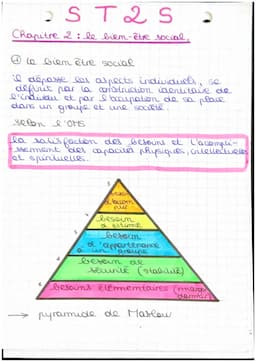 ST2S
Chapitre 2 : le bien-être social.
① le bien être social
il dépasse les aspects individuels, se
définit par la construction identitaire de
l'individu et par l'occupation de sa place
dans un groupe et une société.
selon l'OMS
la satisfaction des besoins et l'accompli-
ssement des capacités physiques, intellectuelles
et spirituelles.
5
besoin
d'accom
4
besoin
d'estime
3
besoin
d'appartenance
à un groupe
2
besoin de
sécurité (stabilité)
1
besoins élémentaires (manger
→ pyramide de Maslow